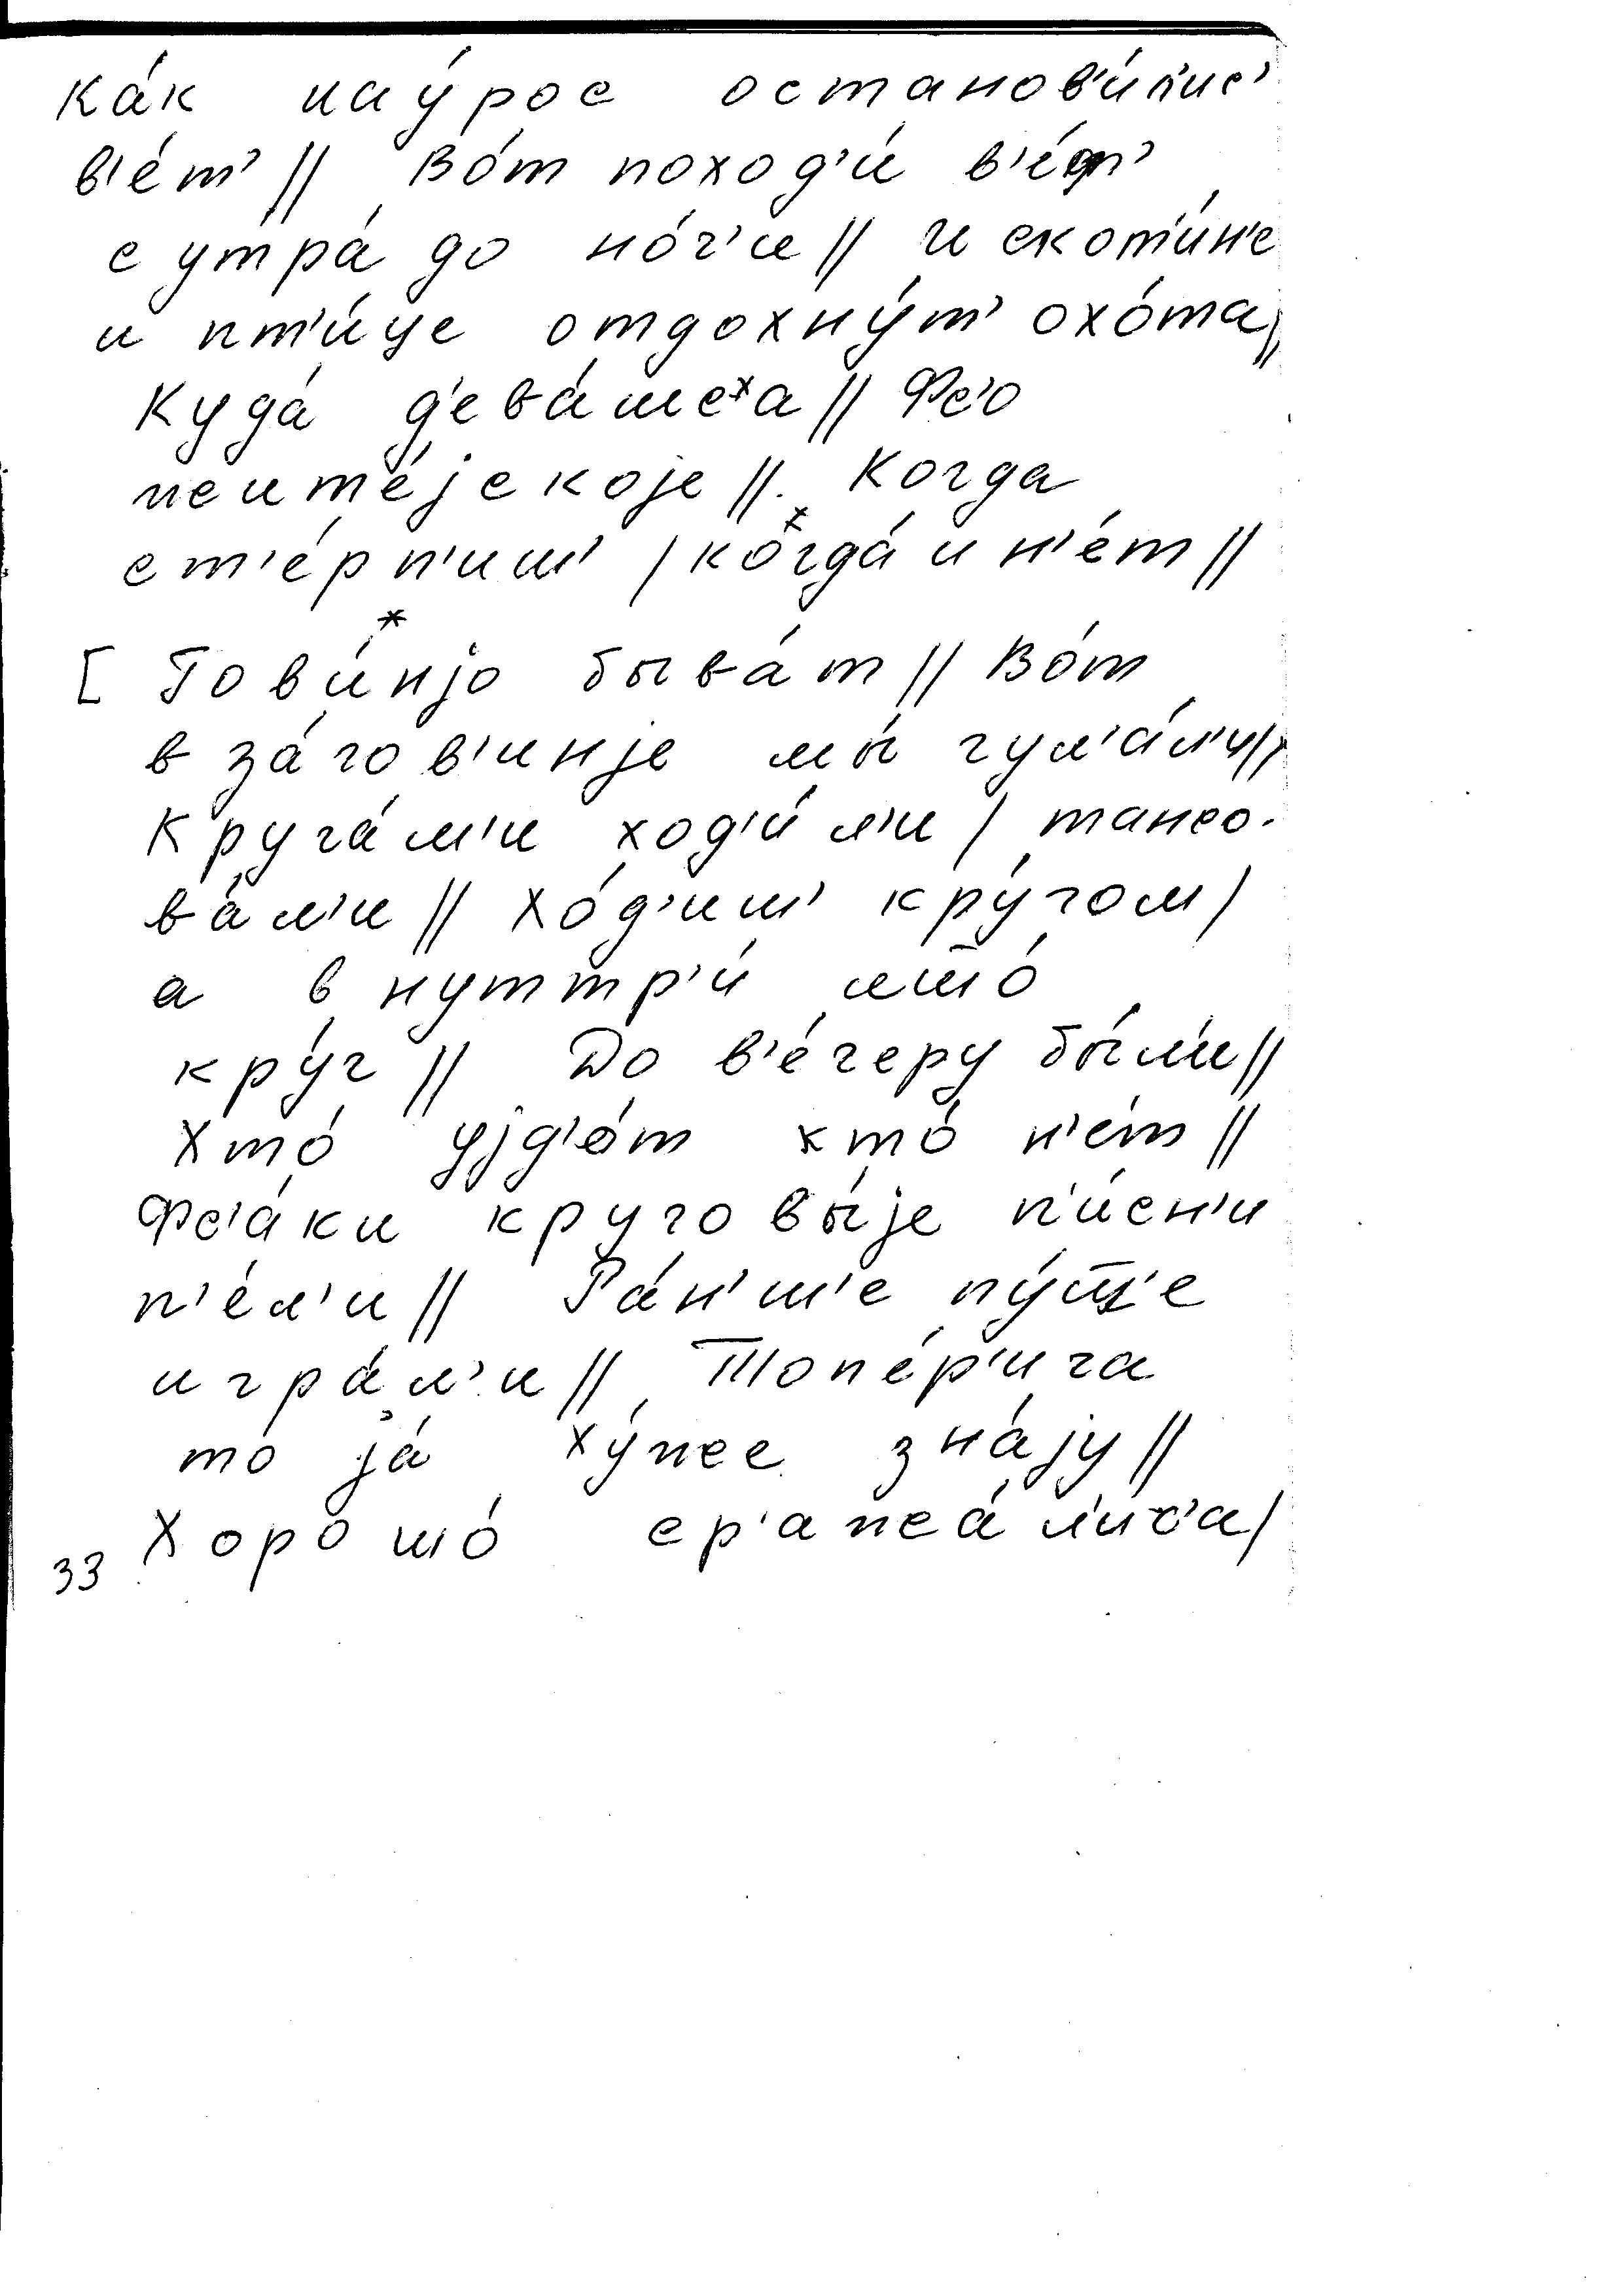 ка́к нау́рос останов'и́л'ис'
в'е́т' // Во́т поход'и́ в'е́т'
с утра́ до но́ч'и // И скот'и́н'е
и пт'и́це отдохну́т' охо́та //
Куда́ д'ева́шсха // Фс'о
жите́јскоје // Когда
ст'е́рп'иш' / когда́ и н'е́т //
[ Гови́нjо быва́т // Во́т
в за́гов'инје мы́ гул'а́л'и //
Круга́м'и ход'и́л'и / тансо-
ва́л'и // Хо́д'иш' кру́гом /
а в нуттр'и́ што́
кру́г // До в'е́черу бы́л'и //
Хто́ ујд'о́т хто́ н'е́т //
Фс'а́ки круговы́је п'и́сн'и
п'е́л'и // Ра́н'ш'е пу́шше
игра́л'и // Топе́р'ича
то jа́ ху́же зна́jу //
Хорошо́ ср'ажа́л'ис'а /
33